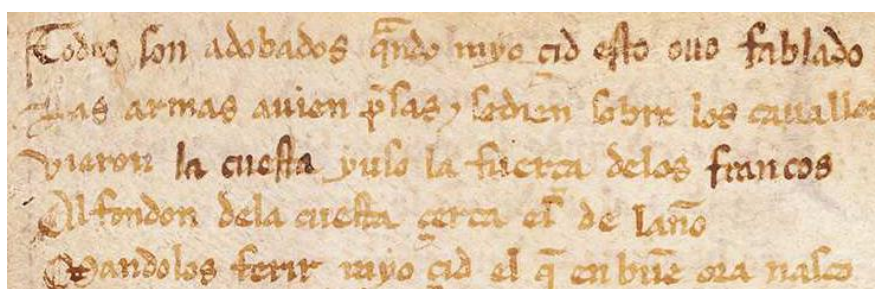 Todos son adobados qñdo myo çid esto ouo fablado
Las armas auien p̃sas ⁊ sedien sobre los cauallos
Vieron la cuesta yuso la fuerça delos francos
Al fondon dela cuesta çerca es̃ de laño
Mandolos ferir myo çid el q̃ en bũe ora nasco